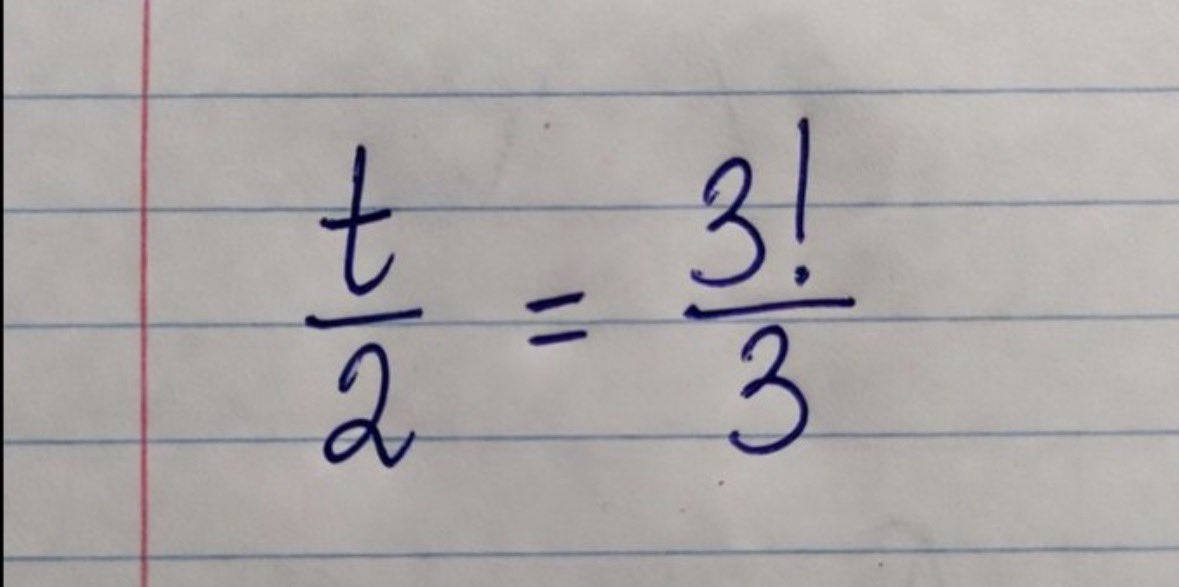 t/2 = 3!/3